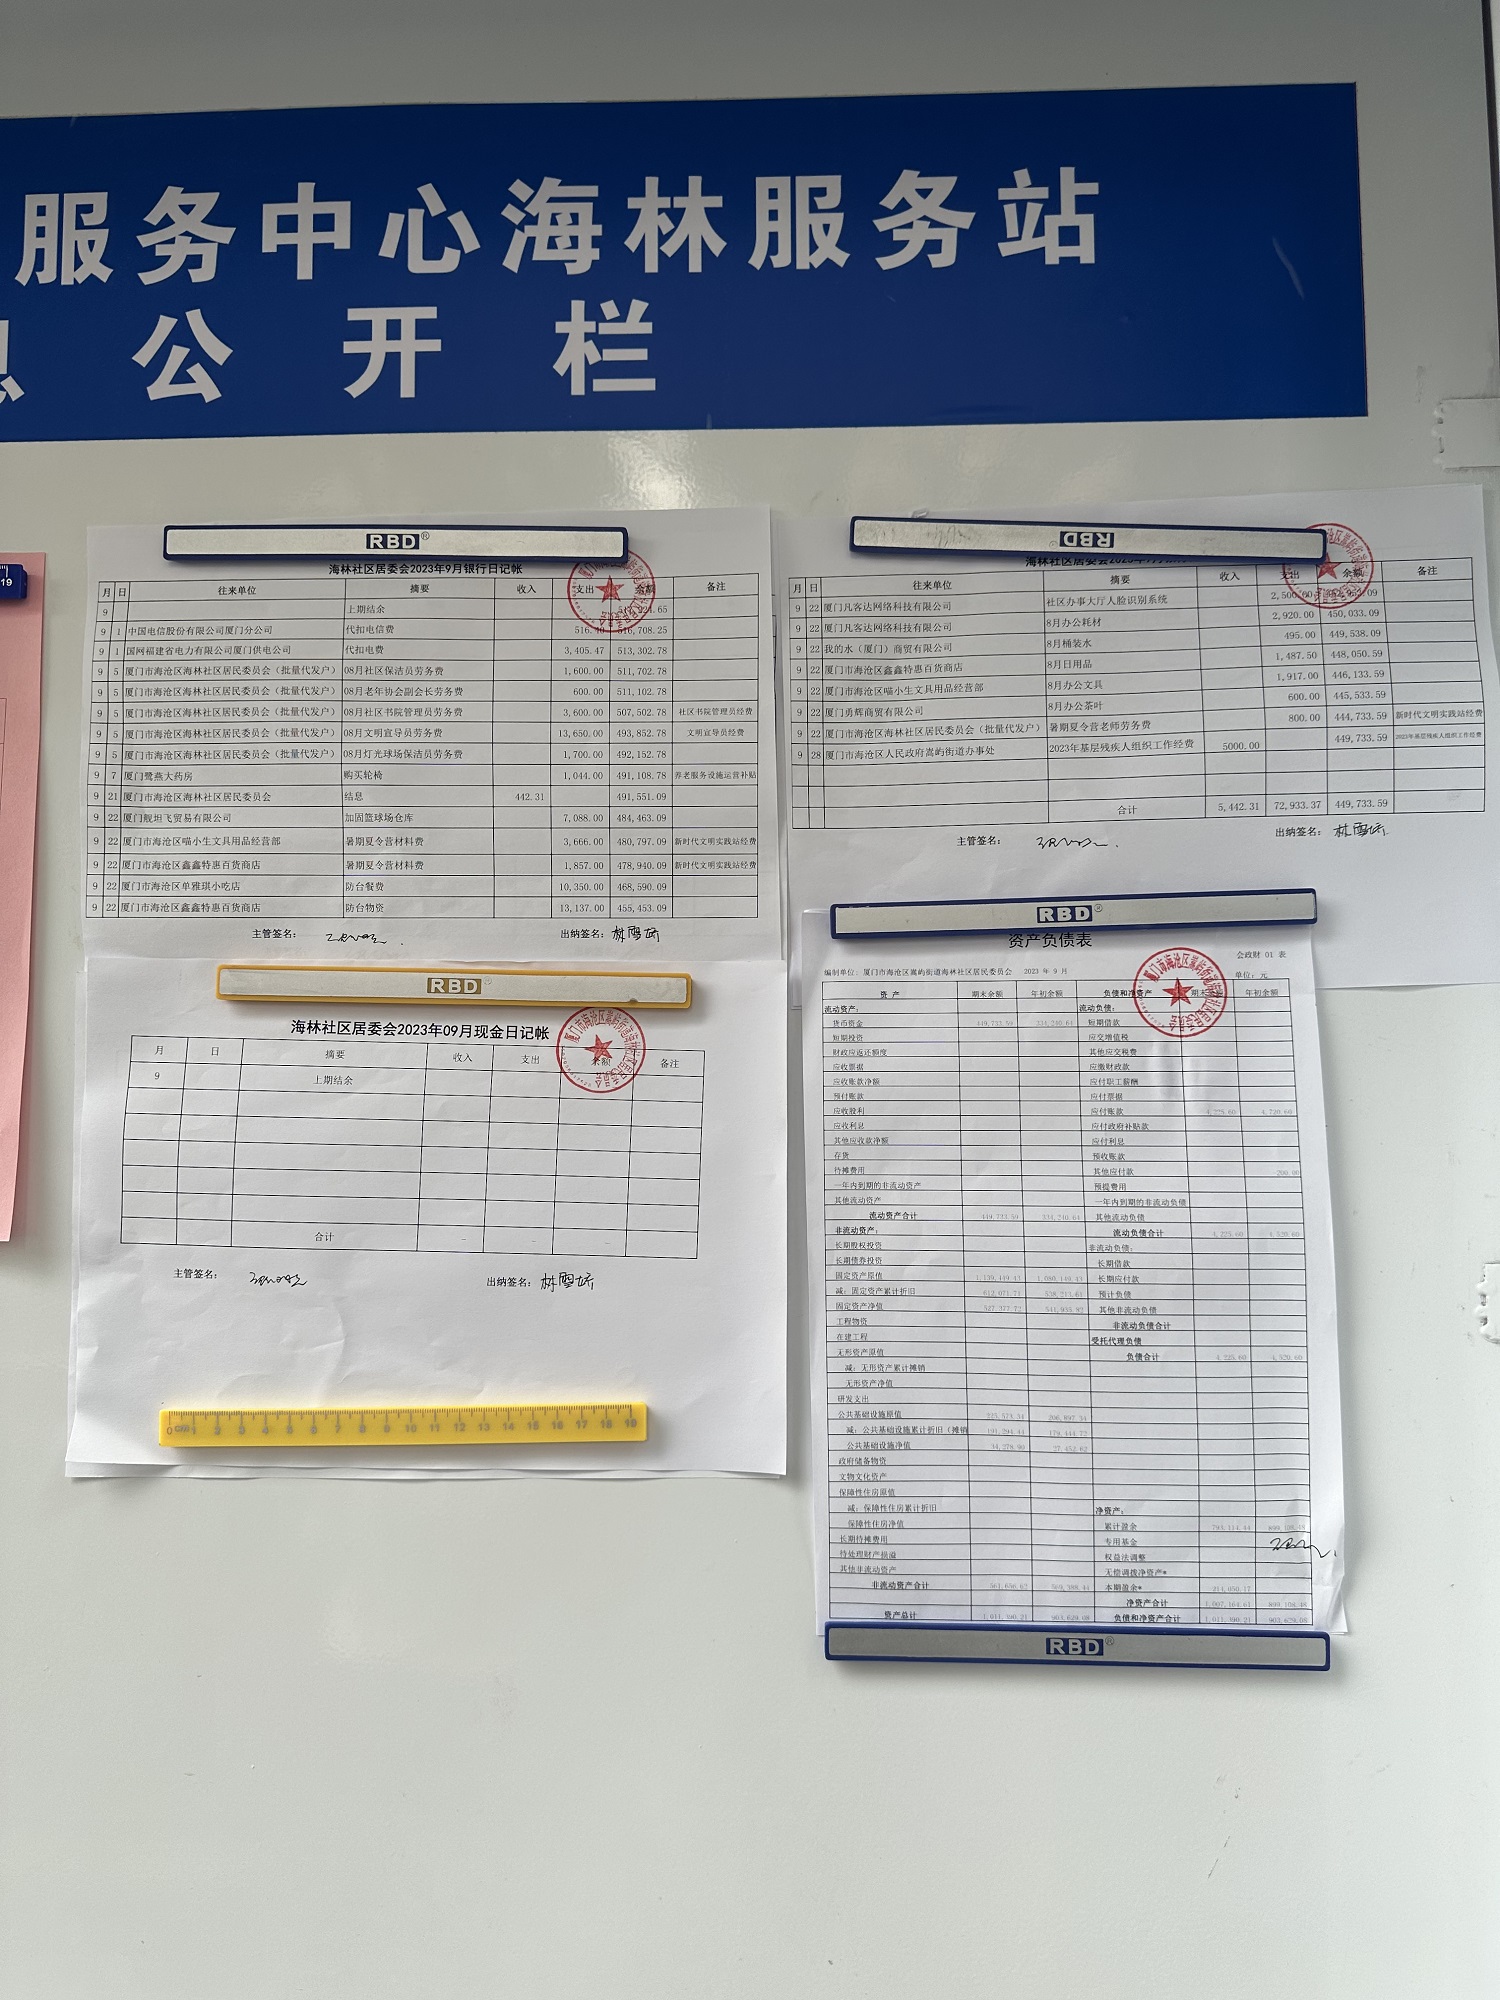 服务中心海林服务站
公开栏
19
RBD®
海林社区居委会2023年9月银行日记帐
月 日 往来单位 摘要 收入 支出 余额 备注
9 上期结余
9 1 中国电信股份有限公司厦门分公司 代扣电信费 516,708.25
9 1 国网福建省电力有限公司厦门供电公司 代扣电费 3,405.47 513,302.78
9 5 厦门市海沧区海林社区居民委员会（批量代发户） 08月社区保洁员劳务费 1,600.00 511,702.78
9 5 厦门市海沧区海林社区居民委员会（批量代发户） 08月老年协会副会长劳务费 600.00 511,102.78
9 5 厦门市海沧区海林社区居民委员会（批量代发户） 08月社区书院管理员劳务费 3,600.00 507,502.78 社区书院管理员经费
9 5 厦门市海沧区海林社区居民委员会（批量代发户） 08月文明宣导员劳务费 13,650.00 493,852.78 文明宣导员经费
9 5 厦门市海沧区海林社区居民委员会（批量代发户） 08月灯光球场保洁员劳务费 1,700.00 492,152.78
9 7 厦门鹭燕大药房 购买轮椅 1,044.00 491,108.78 养老服务设施运营补贴
9 21 厦门市海沧区海林社区居民委员会 结息 442.31 491,551.09
9 22 厦门舰坦飞贸易有限公司 加固篮球场仓库 7,088.00 484,463.09
9 22 厦门市海沧区喵小生文具用品经营部 暑期夏令营材料费 3,666.00 480,797.09 新时代文明实践站经费
9 22 厦门市海沧区鑫鑫特惠百货商店 暑期夏令营材料费 1,857.00 478,940.09 新时代文明实践站经费
9 22 厦门市海沧区单雅琪小吃店 防台餐费 10,350.00 468,590.09
9 22 厦门市海沧区鑫鑫特惠百货商店 防台物资 13,137.00 455,453.09
主管签名： 出纳签名：
RBD®
月 日 往来单位 摘要 收入 支出 余额 备注
9 22 厦门凡客达网络科技有限公司 社区办事大厅人脸识别系统
9 22 厦门凡客达网络科技有限公司 8月办公耗材 2,920.00 450,033.09
9 22 我的水（厦门）商贸有限公司 8月桶装水 495.00 449,538.09
9 22 厦门市海沧区鑫鑫特惠百货商店 8月日用品 1,487.50 448,050.59
9 22 厦门市海沧区喵小生文具用品经营部 8月办公文具 1,917.00 446,133.59
9 22 厦门勇辉商贸有限公司 8月办公茶叶 600.00 445,533.59
9 22 厦门市海沧区海林社区居民委员会（批量代发户） 暑期夏令营老师劳务费 800.00 444,733.59 新时代文明实践站经费
9 28 厦门市海沧区人民政府嵩屿街道办事处 2023年基层残疾人组织工作经费 5000.00 449,733.59 2023年基层残疾人组织工作经费
合计 5,442.31 72,933.37 449,733.59
主管签名： 出纳签名：
RBD®
海林社区居委会2023年09月现金日记帐
月 日 摘要 收入 支出 余额 备注
9 上期结余
合计 - -
主管签名： 出纳签名：
0 cm 1 2 3 4 5 6 7 8 9 10 11 12 13 14 15 16 17 18 19
RBD®
资产负债表
会政财 01 表
编制单位：厦门市海沧区嵩屿街道海林社区居民委员会 2023 年 9 月 单位：元
资 产 期末余额 年初余额 负债和净资产 年初余额
流动资产： 流动负债：
货币资金 449,733.59 短期借款
短期投资 应交增值税
财政应返还额度 其他应交税费
应收票据 应缴财政款
应收账款净额 应付职工薪酬
预付账款 应付票据
应收股利 应付账款 4,225.60
应收利息 应付政府补贴款
其他应收款净额 应付利息
存货 预收账款
待摊费用 其他应付款
一年内到期的非流动资产 预提费用
其他流动资产 一年内到期的非流动负债
流动资产合计 449,733.59 其他流动负债
非流动资产： 流动负债合计 4,225.60
长期股权投资 非流动负债：
长期债券投资 长期借款
固定资产原值 长期应付款
减：固定资产累计折旧 预计负债
固定资产净值 其他非流动负债
工程物资 非流动负债合计
在建工程 受托代理负债
无形资产原值 负债合计 4,225.60
减：无形资产累计摊销
无形资产净值
研发支出
公共基础设施原值
减：公共基础设施累计折旧（摊销
公共基础设施净值
政府储备物资
文物文化资产
保障性住房原值
减：保障性住房累计折旧 净资产：
保障性住房净值 累计盈余
长期待摊费用 专用基金
待处理财产损溢 权益法调整
其他非流动资产 无偿调拨净资产*
非流动资产合计 本期盈余*
净资产合计
资产总计 负债和净资产合计
RBD®